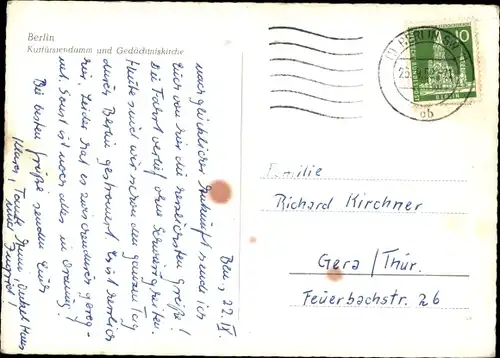 Berlin
Kurfürstendamm und Gedächtniskirche
Bln., 22. IV.
nach glücklicher Ankunft sende ich
Euch von hier die herzlichsten Grüße!
Die Fahrt verlief ohne Schwierigkeiten.
Heute sind wir schon den ganzen Tag
durch Berlin gebummelt. Es ist herrlich
hier. Leider hat es zwischendurch gereg-
net. Sonst ist noch alles in Ordnung!
Die besten Grüße senden Euch
Tante Onkel Hans
und Ingrid!
10
BERLIN
Familie
Richard Kirchner
Gera / Thür.
Feuerbachstr. 26